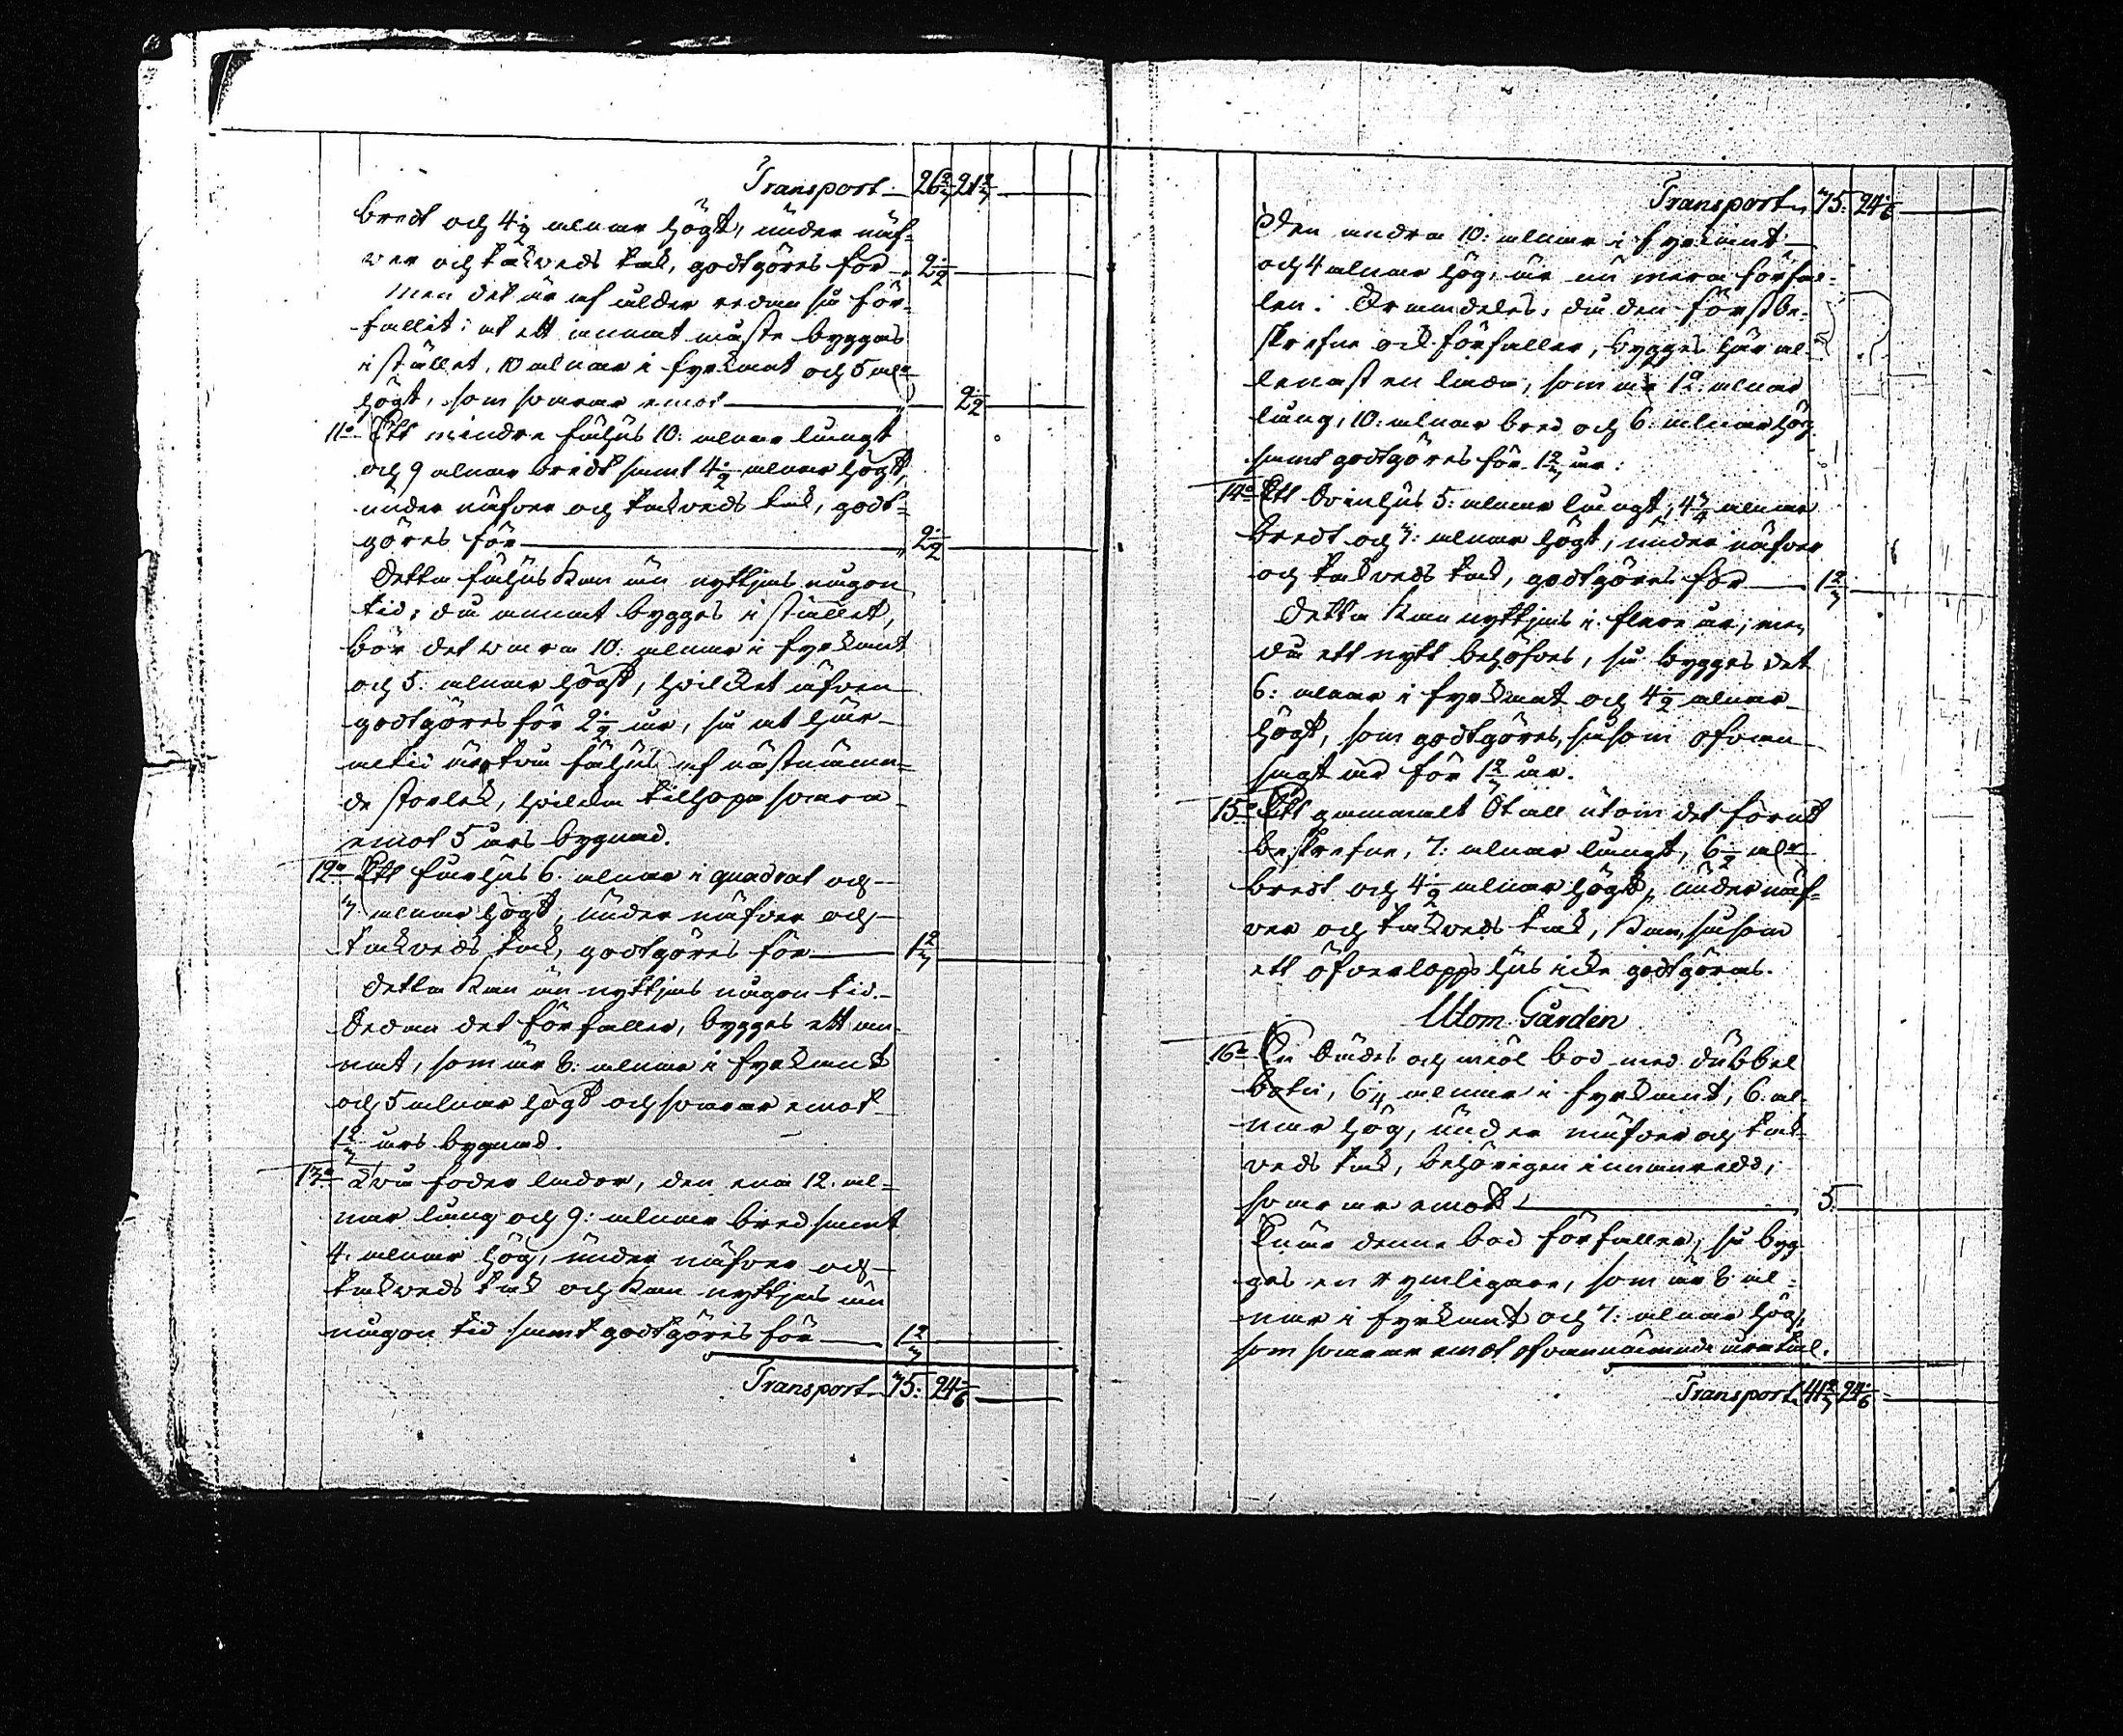 Transport. 26 2/3 21 2/3
bredt och 4 1/2 alnar högt, under näf-
ver och takveds tak, godtgöres för 2 1/2
Men det är af ålder redan så för-
fallit: at ett annat måste byggas
i stället, 10 alnar i fyrkant och 5 alr
högt, som svarar emot 2 1/2
11o Ett mindre fähus 10: alnar långt
och 9 alnar bredt samt 4 1/2 alnar högt,
under näfver och takveds tak, godt-
göres för 2 1/2
Detta fähus kan än nyttjas någon
tid: då annat bygges i stället,
bör det wara 10: alnar i fyrkant
och 5: alnar högt, hvilket äfven
godtgöres för 2 1/2 år, så at här-
netid är två fähus af nästnämn-
de storlek, hvilka tillhopa svara
emot 5 års bygnad.
12o Ett fårhus 6. alnar i quadrat och
3 alnar högt, under näfver och
takveds tak, godtgöres för 1 2/3
Detta kan än nyttjas någon tid.
Sedan det förfaller, bygges ett an-
nat, som är 8: alnar i fyrkant
och 5 alnar högt och svarar emot
1 2/3 års bygnad.
13o Två foder lador, den ena 12. al-
nar lång och 9: alnar bred samt
4. alnar hög, under näfver och
takveds tak och kan nyttjas än
någon tid samt godtgöres för 1 2/3
Transport. 35. 24 1/6
Transport. 35. 24 1/6
Den andra 10: alnar i fyrkant
och 4 alnar hög, är nu mera förfal-
len. Årundeles, då den förstbe-
skrefne ock förfaller, bygges här al-
lenast en lada, som är 12 alnar
lång, 10: alnar bred och 6: alnar hög
samt godtgöres för 1 2/3 år.
14o Ett Svinhus 5: alnar långt, 4 3/4 alnar
bredt och 3: alnar högt, under näfver
och takveds tak, godtgöres för 1 2/3
Detta kan nyttjas i flera år, men
då ett nytt behöfves, så bygges det
6: alnar i fyrkant och 4 1/2 alnar
högt, som godtgöres, såsom ofvan
sagt är för 1 2/3 år.
15o Ett gammalt Stall utom det förut
beskrefne, 7: alnar långt, 6 1/2 alr
bredt och 4 1/2 alnar högt, under näf-
ver och takveds tak, kan, såsom
ett öfverlopps hus icke godtgöras.
Utom Gården
16o En Sädes och mjöl bod med dubbel
botn, 6 1/4 alnar i fyrkant, 6. al-
nar hög, under näfver och tak-
veds tak, behörigen innanredd,
svarar emot 5.
När denne bod förfaller, så byg-
ges en rymligare, som är 8 al-
nar i fyrkant och 7: alnar hög,
som svarar emot ofvannämnde åratal.
Transport. 41 2/3 24 1/6